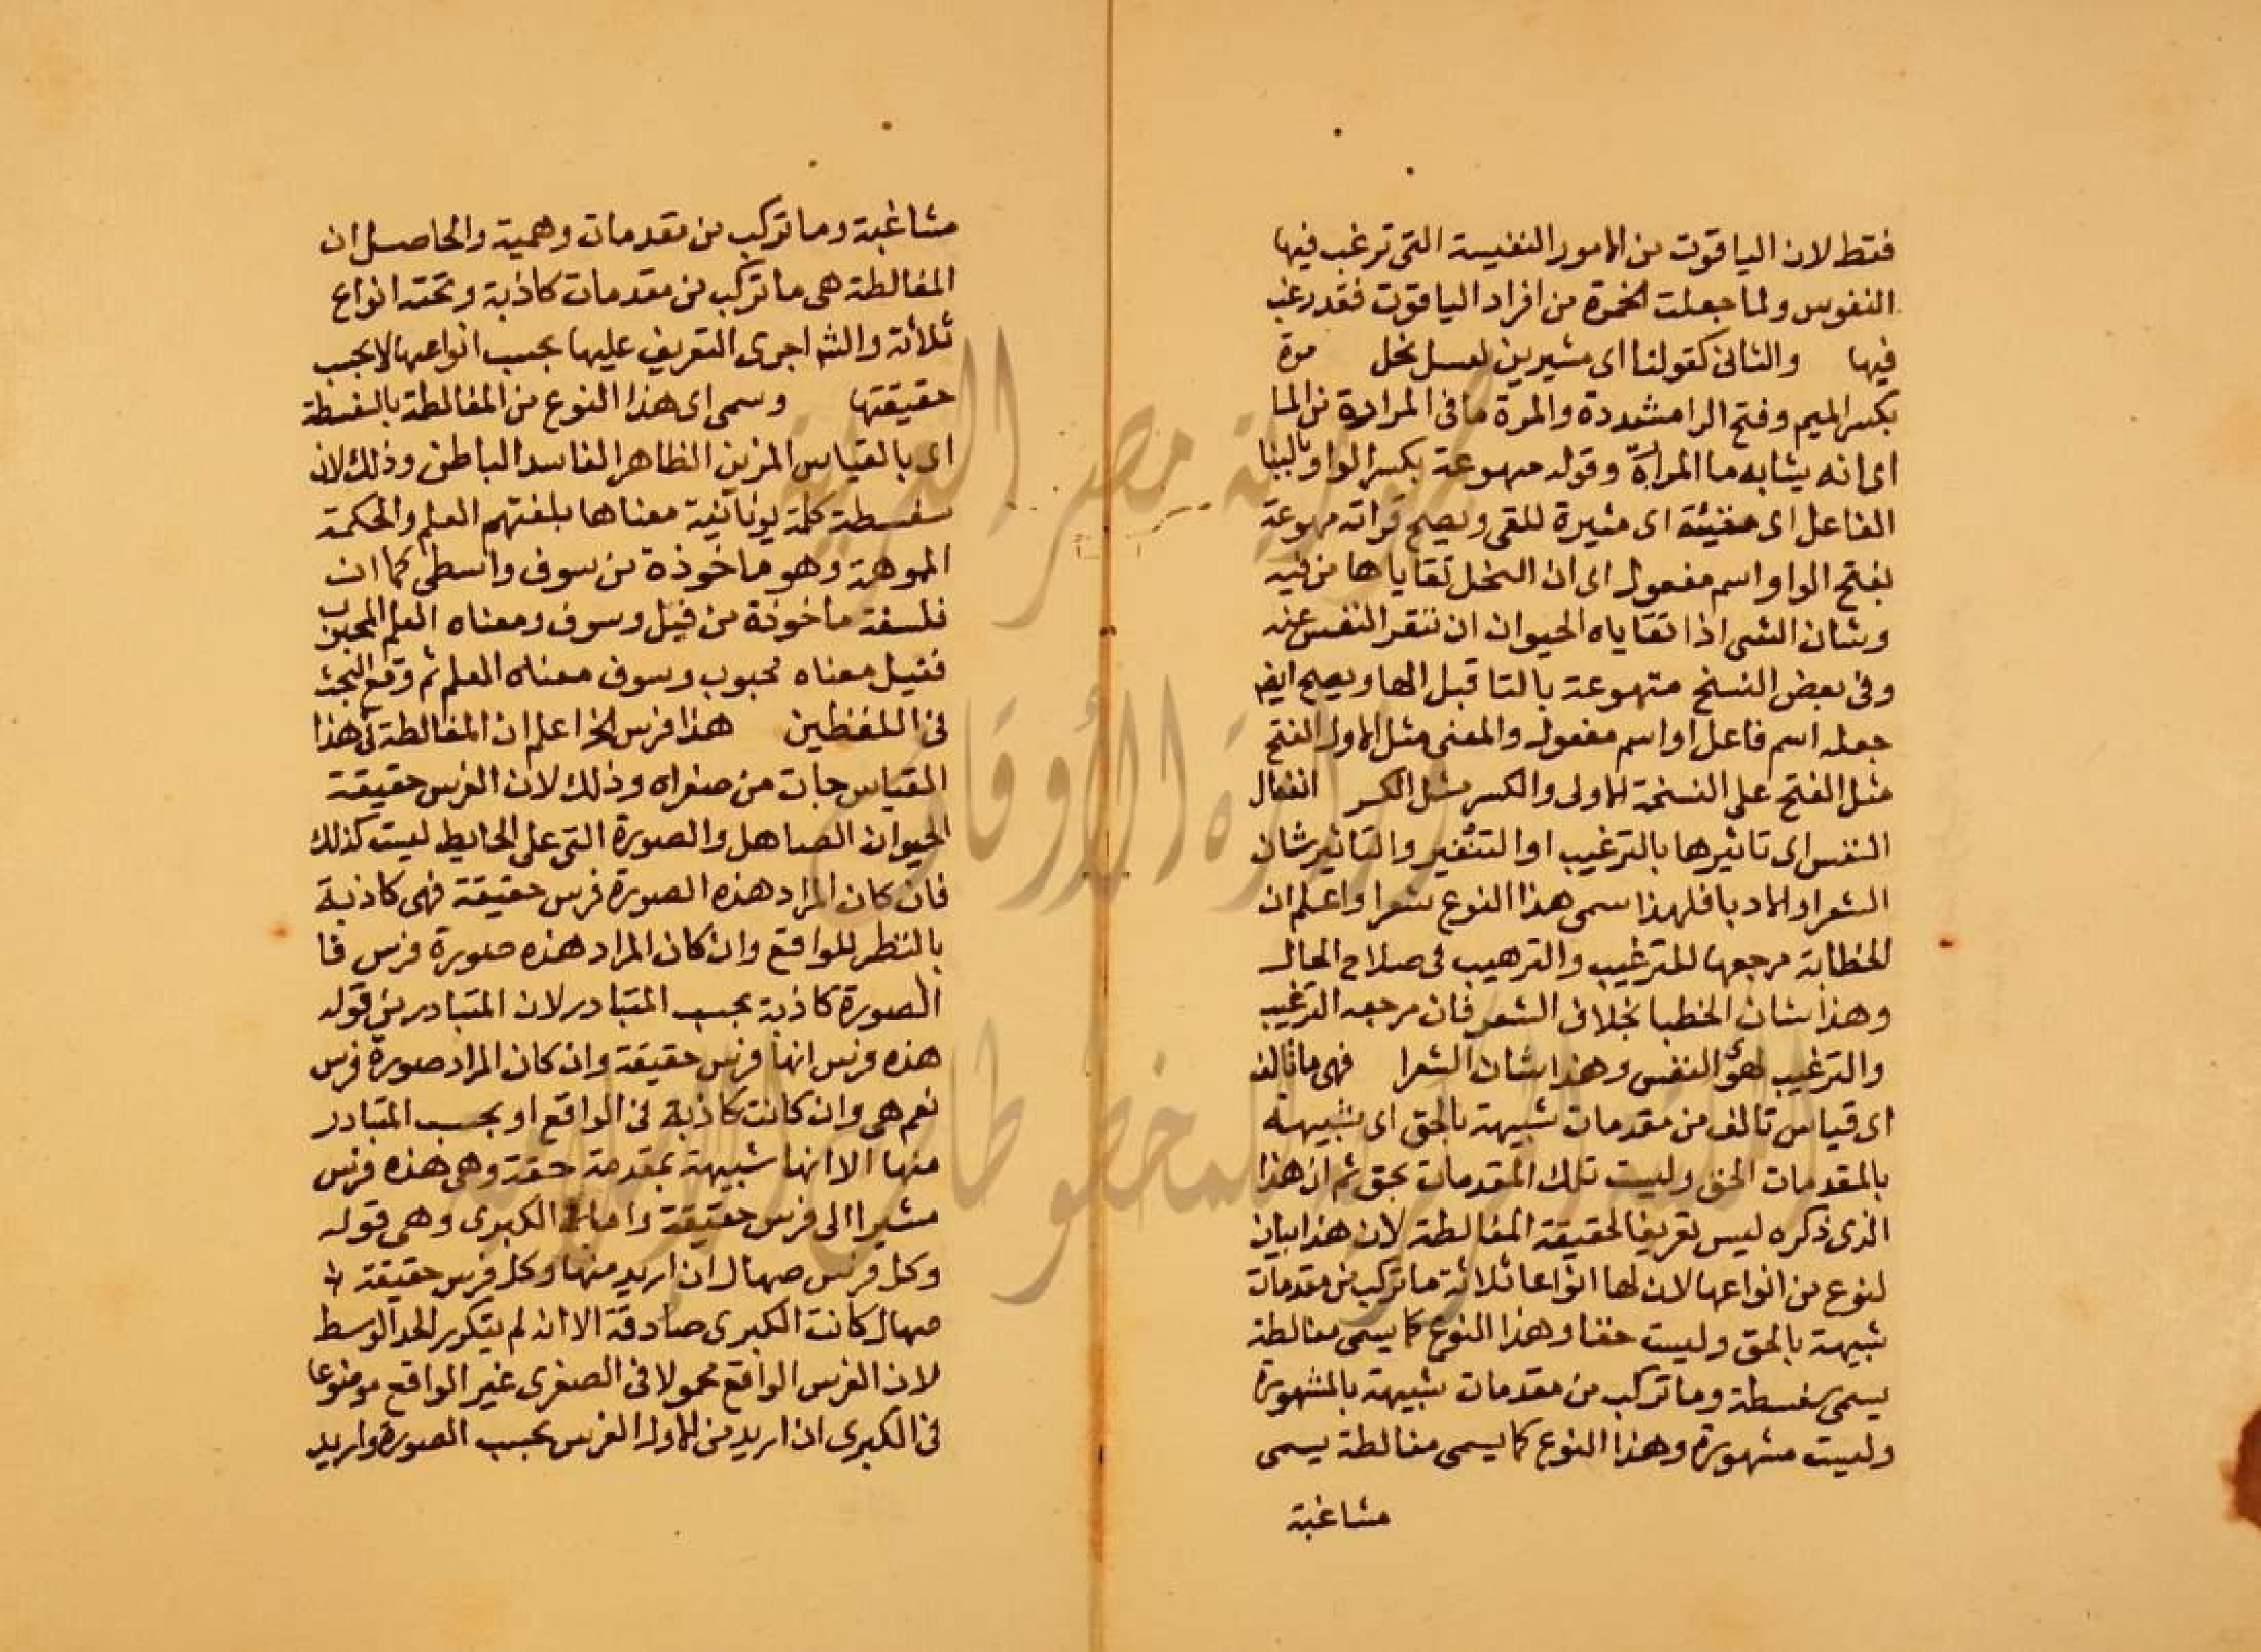 فقط لان الياقوت من الامور النفيسة التى ترغب فيها
النفوس ولما جعلت الخمرة من افراد الياقوت فقد رغب
فيها والثانى كقولنا اى مشيرين لعسل نحل مرة
بكسر الميم وفتح الرا مشددة والمرة ما فى المرارة من الما
اى انه يشابه ما المرارة وقوله مهوعة بكسر الواو بالبنا
الفاعل اى مقيئة اى مثيرة للقى ويصح قراته مهوعة
بفتح الواو اسم مفعول اى ان النحل تقاياها من فيه
وشان الشى اذا تقاياه الحيوان ان تنفر النفس عنه
وفى بعض النسخ متهوعة بالتا قبل الها ويصح ايضا
جعله اسم فاعل او اسم مفعول والمعنى مثل الاول الفتح
مثل الفتح على النسخة الاولى والكسر مثل الكسر انفعال
النفس اى تاثيرها بالترغيب او التنفير والتاثير شان
الشعر او الادبا فلهذا سمى هذا النوع شعرا واعلم ان
الخطابة مرجعها للترغيب والترهيب فى صلاح الحال
وهذا شان الخطبا بخلاف الشعر فان مرجعه الترغيب
والترغيب لهوى النفس وهذا شان الشعرا فهى ما تالف
اى قياس تالف من مقدمات شبيهة بالحق اى شبيهة
بالمقدمات الحق وليست تلك المقدمات بحق ثم ان هذا
الذى ذكره ليس تعريفا لحقيقة المغالطة لان هذا بيان
لنوع من انواعها لان لها انواعا ثلاثة ما تركب من مقدمات
شبيهة بالحق وليست حقا وهذا النوع كما يسمى مغالطة
يسمى سفسطة وما تركب من مقدمات شبيهة بالمشهورة
وليست مشهورة وهذا النوع كما يسمى مغالطة يسمى
مشاغبة
مشاغبة وما تركب من مقدمات وهمية والحاصل ان
المغالطة هى ما تركب من مقدمات كاذبة وتحته انواع
ثلاثة والشه اجرى التعريف عليها بحسب انواعها لا بحسب
حقيقتها وسمى اى هذا النوع من المغالطة بالسفسطة
اى بالقياس المزين الظاهر الفاسد الباطن وذلك لان
سفسطة كلمة يونانية معناها بلغتهم العلم والحكمة
الموهمة وهو ماخوذة من سوف واسطى كما ان
فلسفة ماخوذة من فيل وسوف ومعناه العلم المحبوب
ففيل معناه محبوب وسوف معناه العلم ثم وقع النحت
فى اللفظين هذا فرس الخ اعلم ان المغالطة فى هذا
القياس جات من صغراه وذلك لان الفرس حقيقة
الحيوان الصاهل والصورة التى على الحايط ليست كذلك
فان كان المراد هذه الصورة فرس حقيقة فهى كاذبة
بالنظر للواقع وان كان المراد هذه صورة فرس فا
الصورة كاذبة بحسب المتبادر لان المتبادر من قوله
هذه فرس انها فرس حقيقة وان كان المراد صورة فرس
نعم هى وان كانت كاذبة فى الواقع او بحسب المتبادر
منها الا انها شبيهة بمقدمة حقة وهى هذه فرس
مشيرا الى فرس حقيقة واما الكبرى وهى قوله
وكل فرس صهال ان اريد منها وكل فرس حقيقة
صهال كانت الكبرى صادقة الا انه لم يتكرر الحد الوسط
لان الفرس الواقع محمولا فى الصغرى غير الواقع موضوعا
فى الكبرى ان اريد من الاول الفرس بحسب الصورة واريد